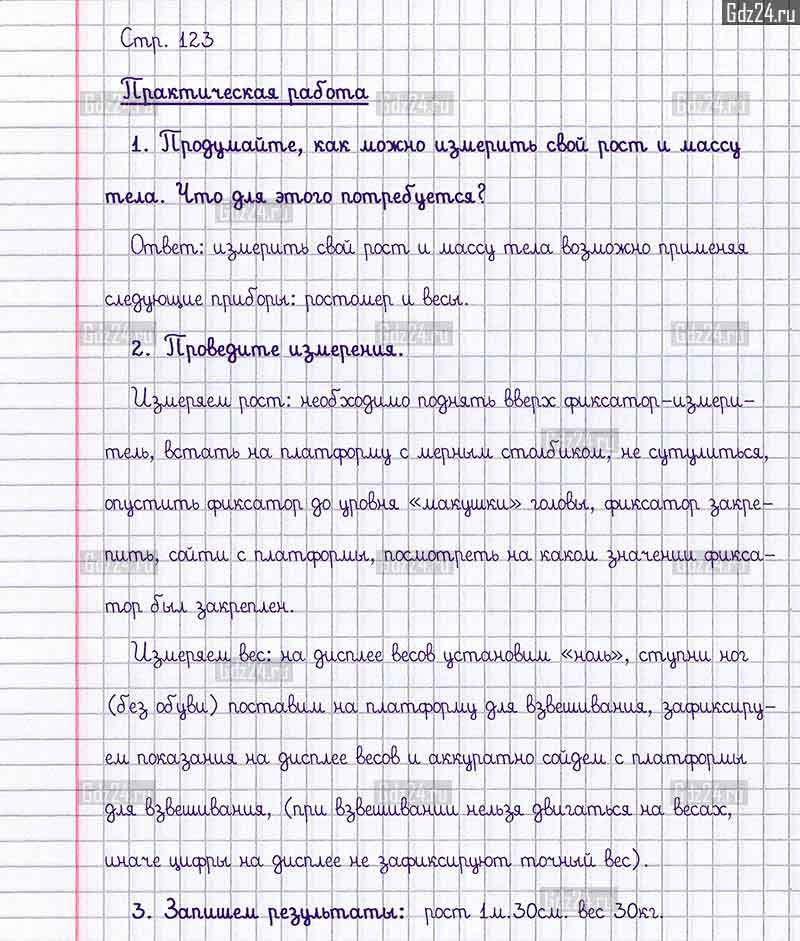 Gdz24.ru
Стр. 123
Практическая работа
1. Продумайте, как можно измерить свой рост и массу
тела. Что для этого потребуется?
Ответ: измерить свой рост и массу тела возможно применяя
следующие приборы: ростомер и весы.
2. Проведите измерения.
Измеряем рост: необходимо поднять вверх фиксатор-измери-
тель, встать на платформу с мерным столбиком, не сутулиться,
опустить фиксатор до уровня «макушки» головы, фиксатор закре-
пить, сойти с платформы, посмотреть на каком значении фикса-
тор был закреплен.
Измеряем вес: на дисплее весов установим «ноль», ступни ног
(без обуви) поставим на платформу для взвешивания, зафиксиру-
ем показания на дисплее весов и аккуратно сойдем с платформы
для взвешивания, (при взвешивании нельзя двигаться на весах,
иначе цифры на дисплее не зафиксируют точный вес).
3. Запишем результаты: рост 1м.30см. вес 30кг.